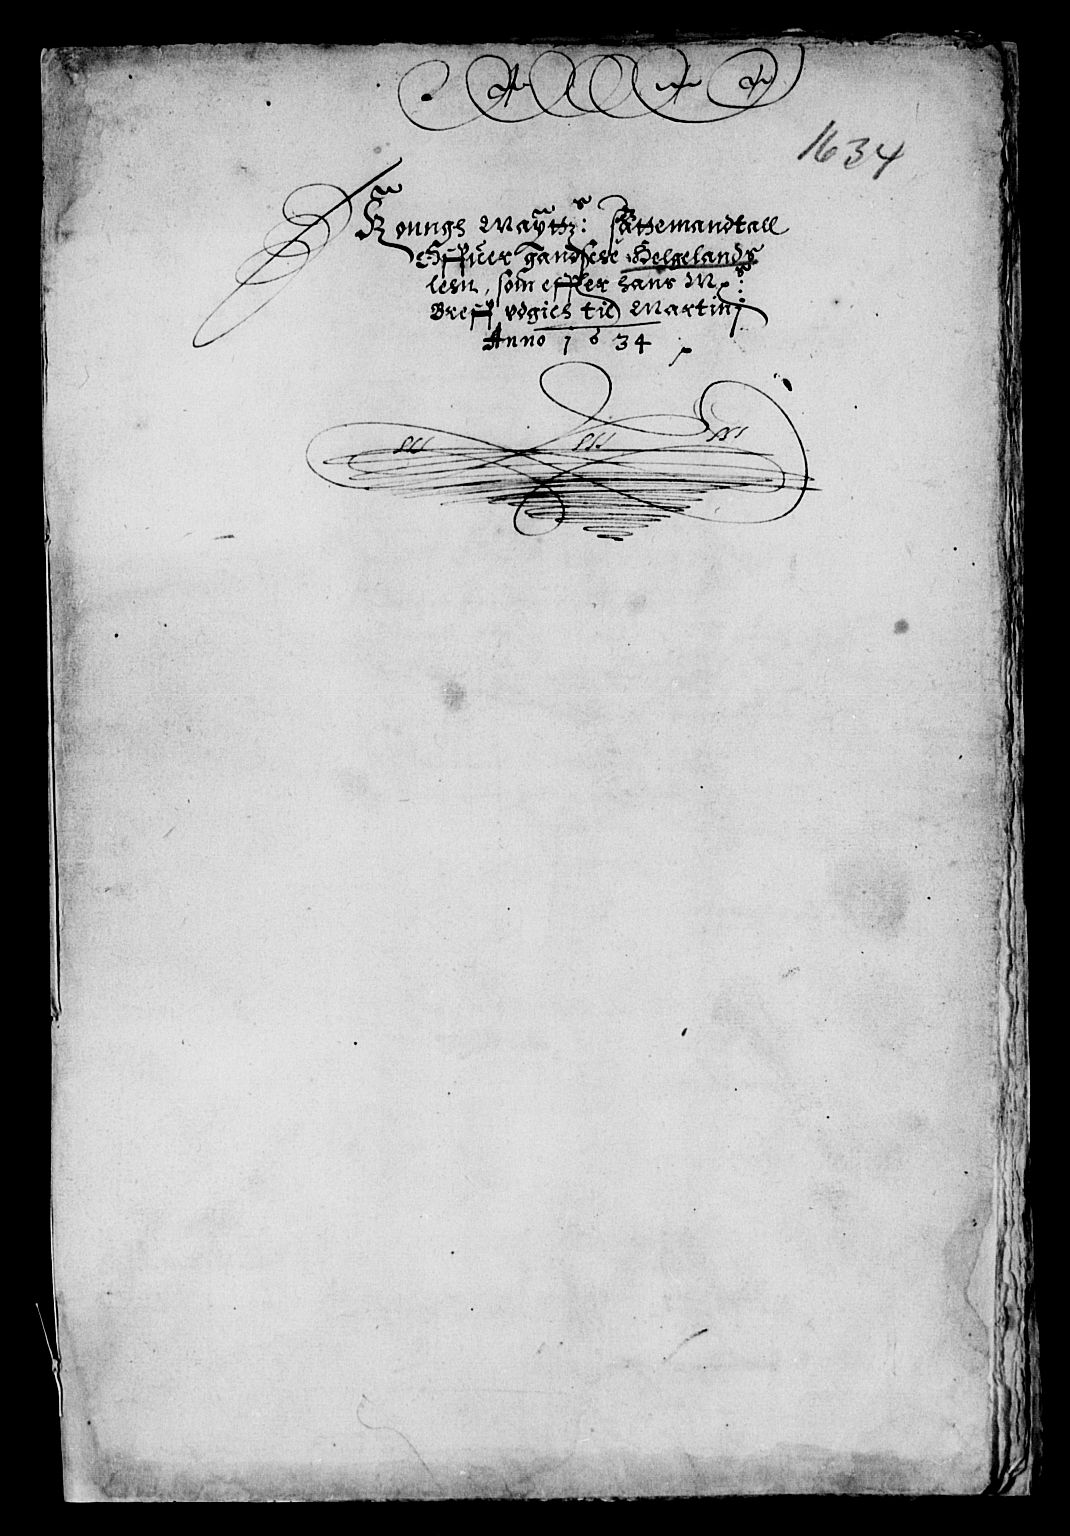 1634
Konngs Mayttz: skattemandtall
Offuer gandsche Helgelands
lehn, som effter hans M:
Breff vdgies till Martinj
Anno 1634